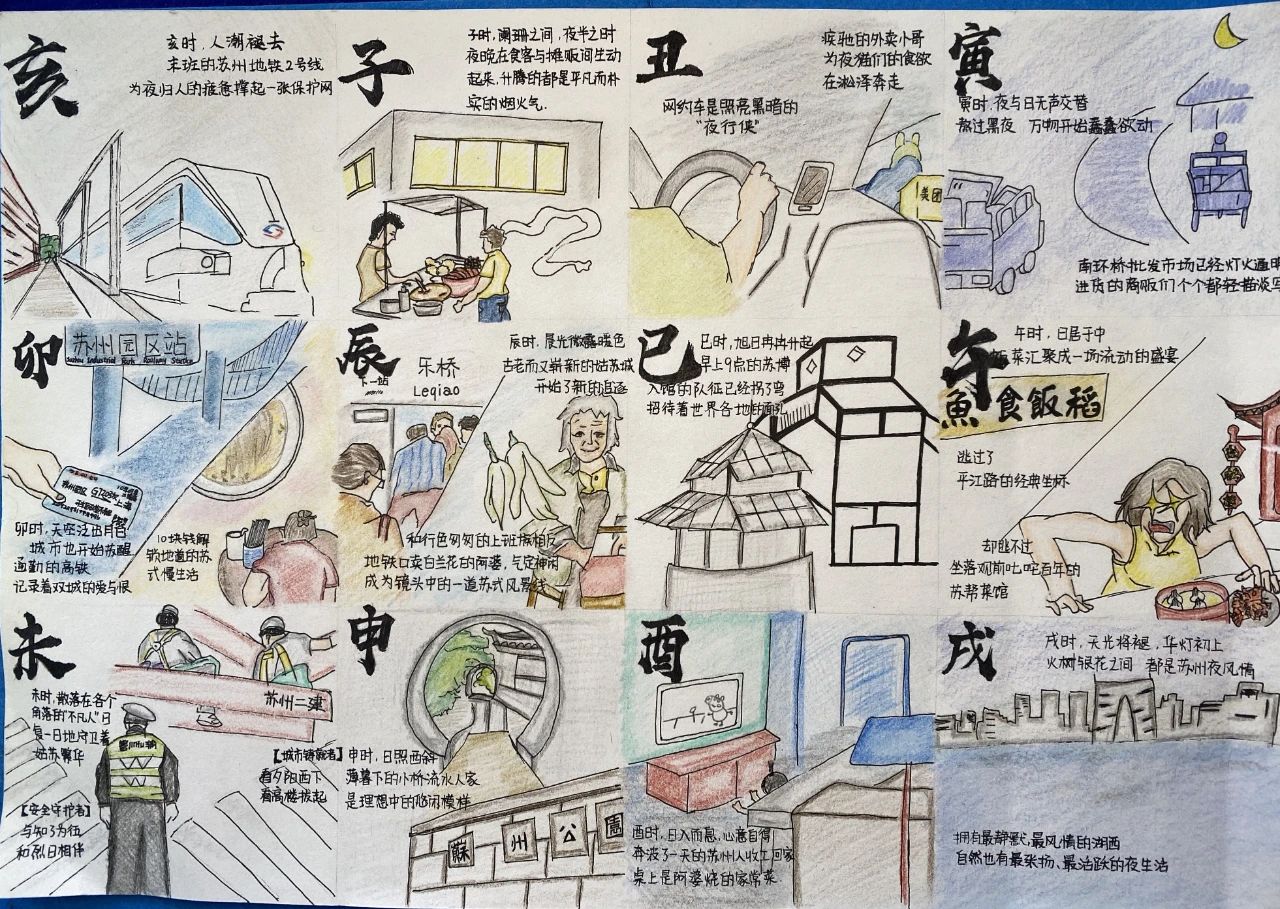 亥
亥时，人潮褪去
末班的苏州地铁2号线
为夜归人的疲惫撑起一张保护网
子
子时，阑珊之间，夜半之时
夜晚在食客与摊贩间生动
起来，升腾的都是平凡而朴
实的烟火气.
丑
疾驰的外卖小哥
为夜猫们的食欲
在淞泽奔走
网约车是照亮黑暗的
“夜行侠”
美团
寅
寅时，夜与日无声交替
熬过黑夜 万物开始蠢蠢欲动
南环桥批发市场已经灯火通明
进货的商贩们个个都轻描淡写
卯
苏州园区站
Suzhou Industrial Park Railway Station
卯时，天空泛出月白
城市也开始苏醒
通勤的高铁
记录着双城的爱与恨
10块钱解
锁地道的苏
式慢生活
辰
下一站
乐桥
Leqiao
辰时，晨光微露暖色
古老而又崭新的姑苏城
开始了新的追逐
和行色匆匆的上班族相反
地铁口卖白兰花的阿婆，气定神闲
成为镜头中的一道苏式风景线
巳
巳时，旭日冉冉升起
早上9点的苏博
入馆的队伍已经拐了弯
招待着世界各地的面孔
午
午时，日居于中
饭菜汇聚成一场流动的盛宴
魚食飯稻
逃过了
平江路的经典坐标
却逃不过
坐落观前叱咤百年的
苏帮菜馆
未
未时，散落在各个
角落的“不凡人”日
复一日地守卫着
姑苏繁华
苏州二建
【城市铸就者】
看夕阳西下
看高楼拔起
【安全守护者】
与知了为伍
和烈日相伴
申
申时，日照西斜
薄暮下的小桥流水人家
是理想中的悠闲模样
蘇州公園
酉
酉时，日入而息，心意自得
奔波了一天的苏州人收工回家
桌上是阿婆烧的家常菜.
戌
戌时，天光将褪，华灯初上
火树银花之间 都是苏州夜风情
拥有最静默，最风情的湖西
自然也有最张扬、最活跃的夜生活